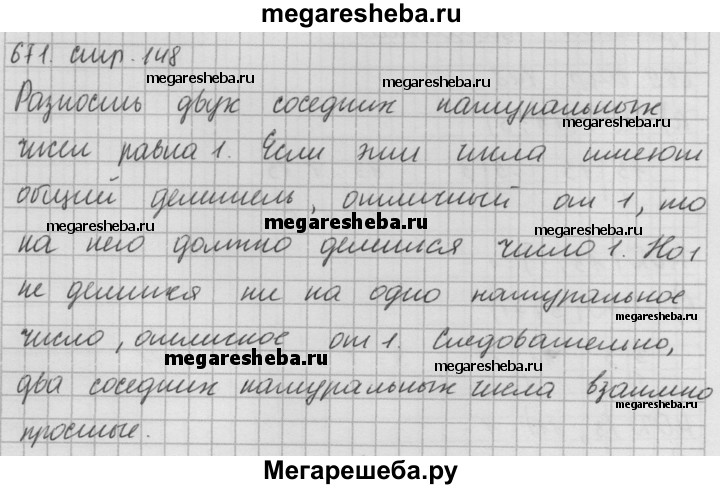 megaresheba.ru
671. стр. 148
megaresheba.ru
megaresheba.ru
Разность двух соседних натуральных
megaresheba.ru
чисел равна 1. Если эти числа имеют
общий делитель, отличный от 1, то
megaresheba.ru
megaresheba.ru
megaresheba.ru
на него должно делиться число 1. Но 1
не делится ни на одно натуральное
megaresheba.ru
число, отличное от 1. Следовательно,
megaresheba.ru
megaresheba.ru
два соседних натуральных числа взаимно
megaresheba.ru
простые.
Мегарешеба.ру